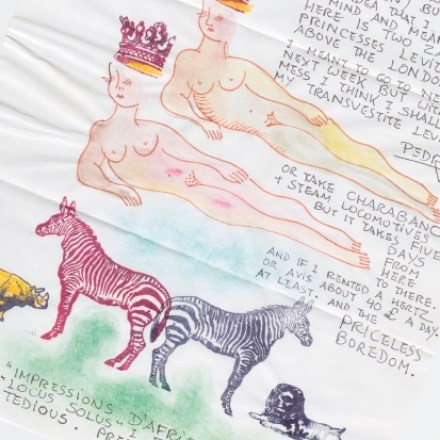 IDEA THAT I
MIND AND MEAN
HERE IS TWO Z
PRINCESSES LEVI
ABOVE THE LONDO
I MEANT TO GO TO NE
NEXT WEEK BUT WIT
MESS I THINK I SHALL
MY TRANSVESTITE LEV
PEDE
OR TAKE CHARABANC
+ STEAM LOCOMOTIVES
BUT IT TAKES FIVE
DAYS
FROM
HERE
TO THERE.
AND IF I RENTED A HERTZ
OR AVIS ABOUT 40 £ A DAY
AT LEAST. AND THE
PRICELESS
BOREDOM.
"IMPRESSIONS D'AFRI
"LOCUS SOLUS" I
TEDIOUS. PRE